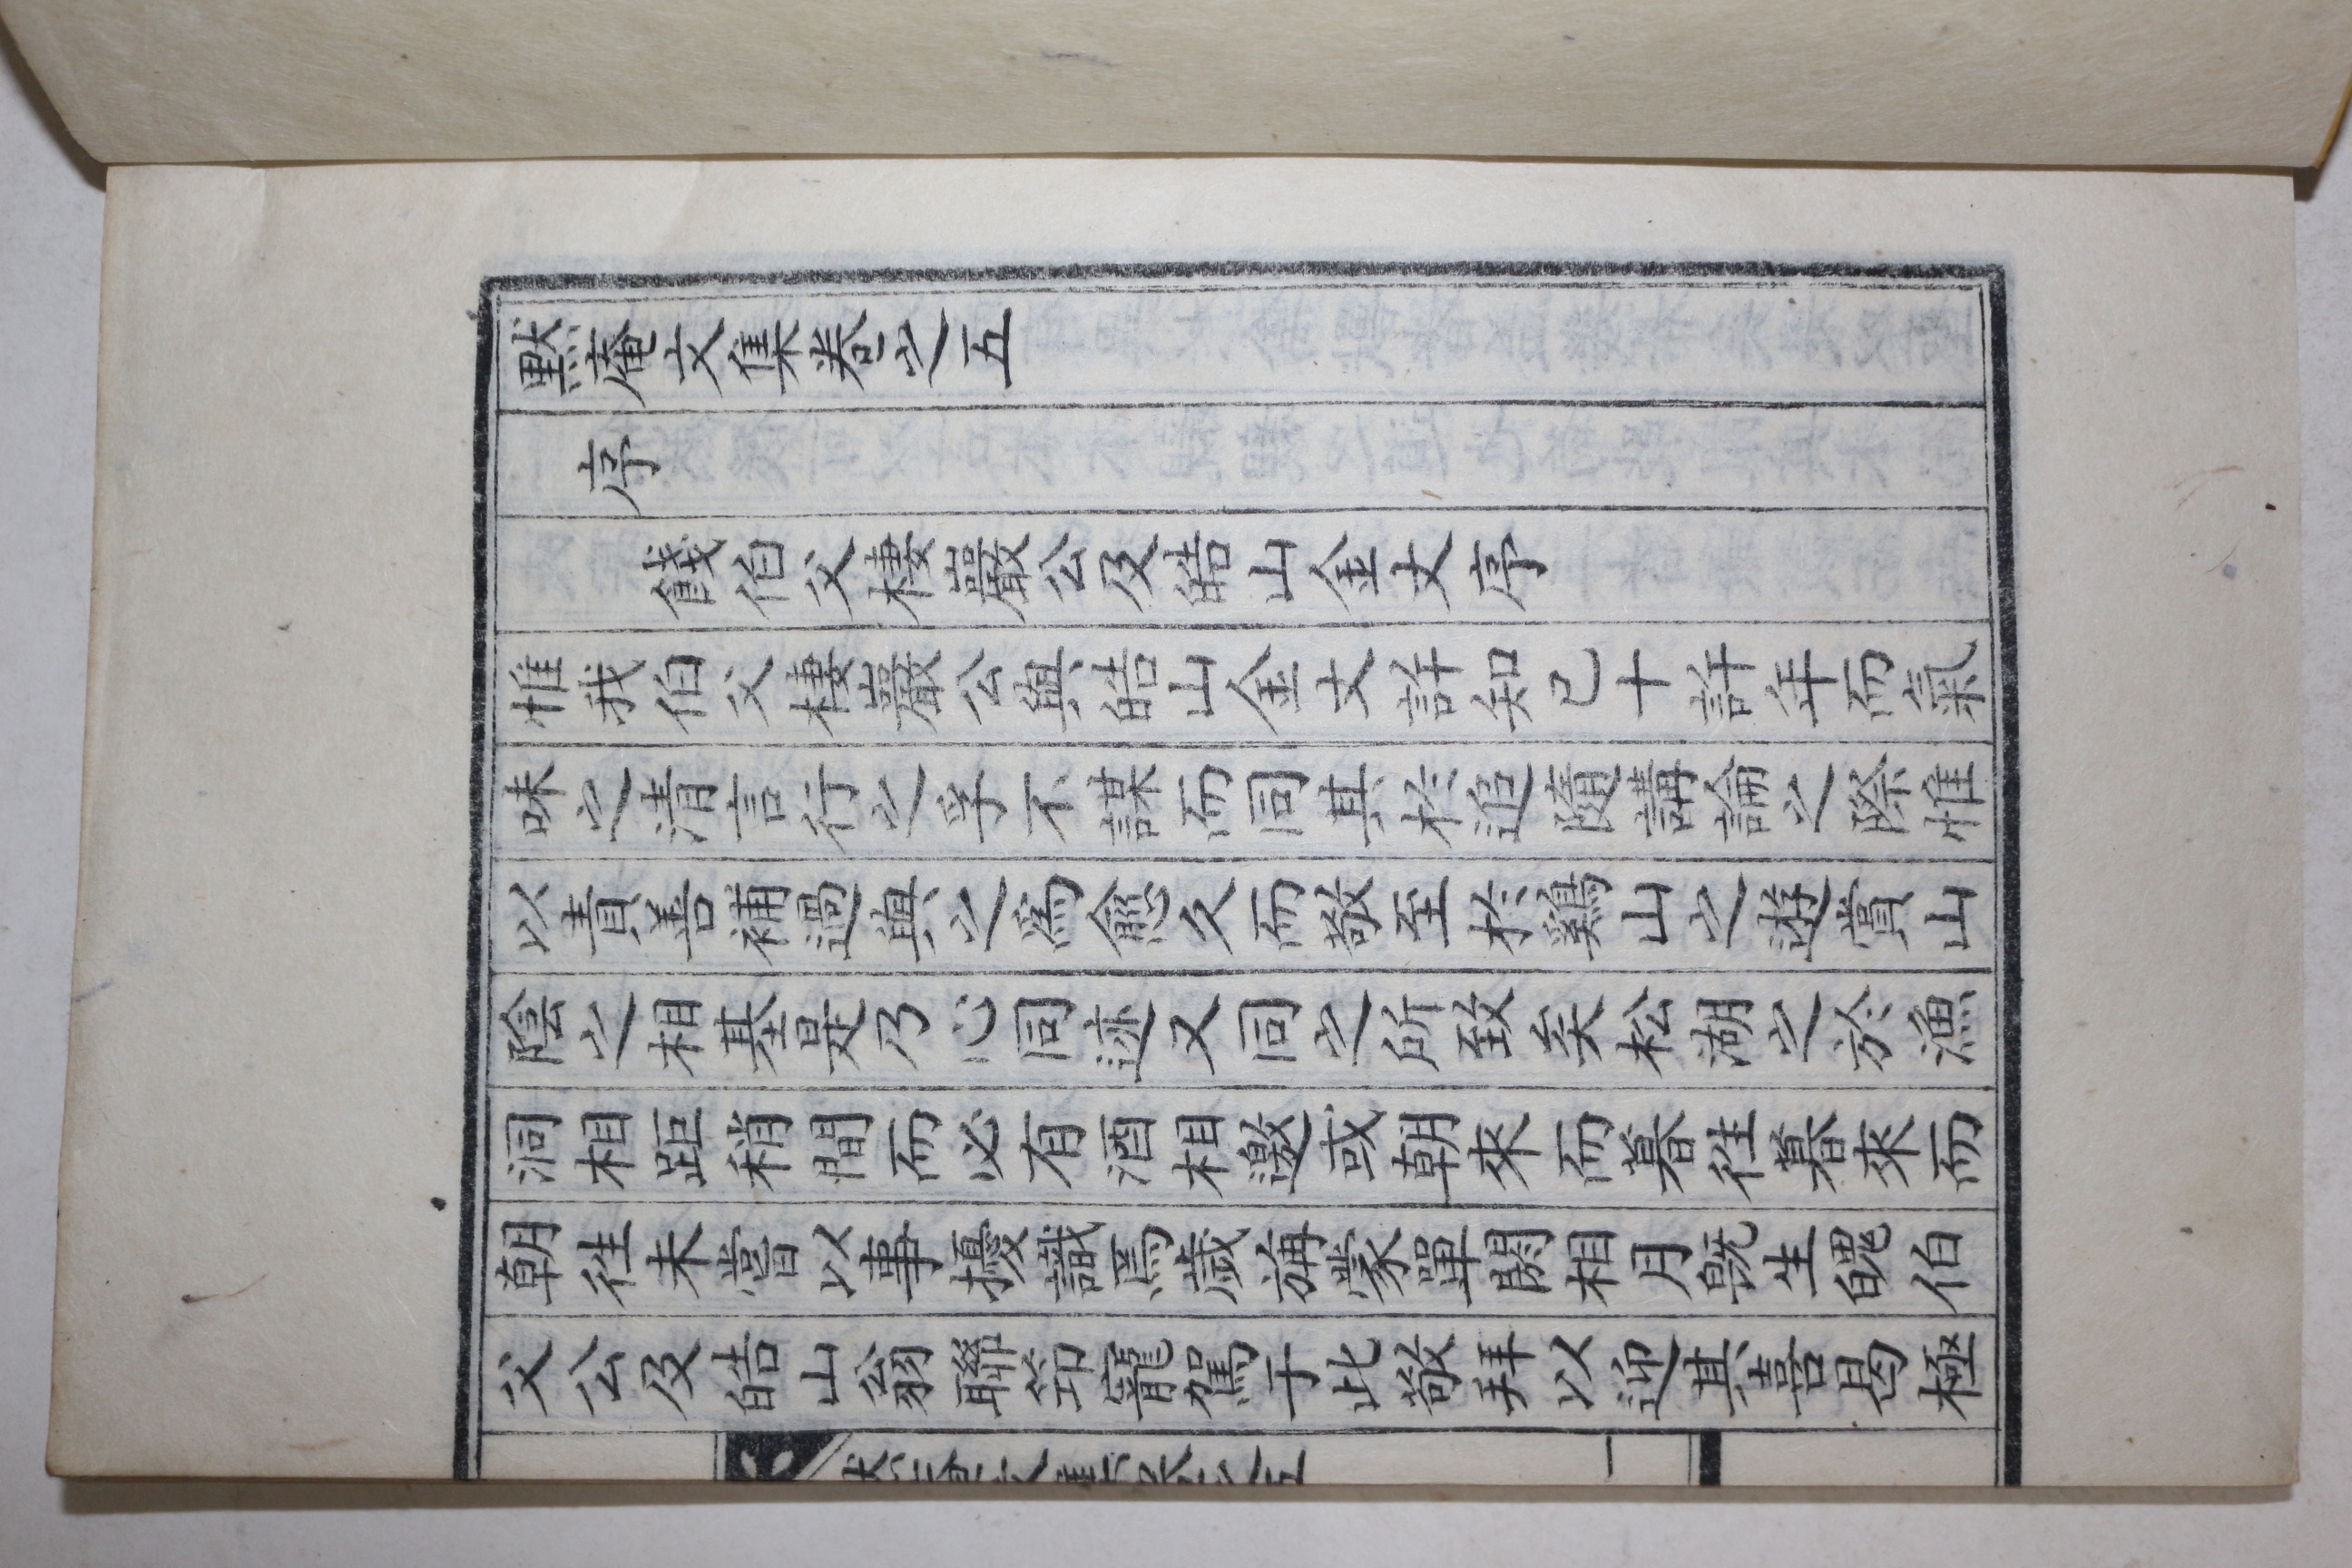 默庵文集卷之五
序
餞伯父棲巖公及皓山金丈序
惟我伯父棲巖公與皓山金丈許知己十許年而氣
味之清言行之孚不謀而同其於追隨講論之際惟
以責善補過與之爲愈久而敬至於鷄山之遊賞山
陰之相基是乃心同迹又同之所致矣松湖之於漁
洞相距稍間而必有酒相邀或朝來而暮往暮來而
朝往未嘗以事擾譏焉歲旃蒙單閼相月旣生魄伯
父公及皓山翁聯筇寵駕于此敬拜以迎其喜曷極
默庵文集卷之五 一